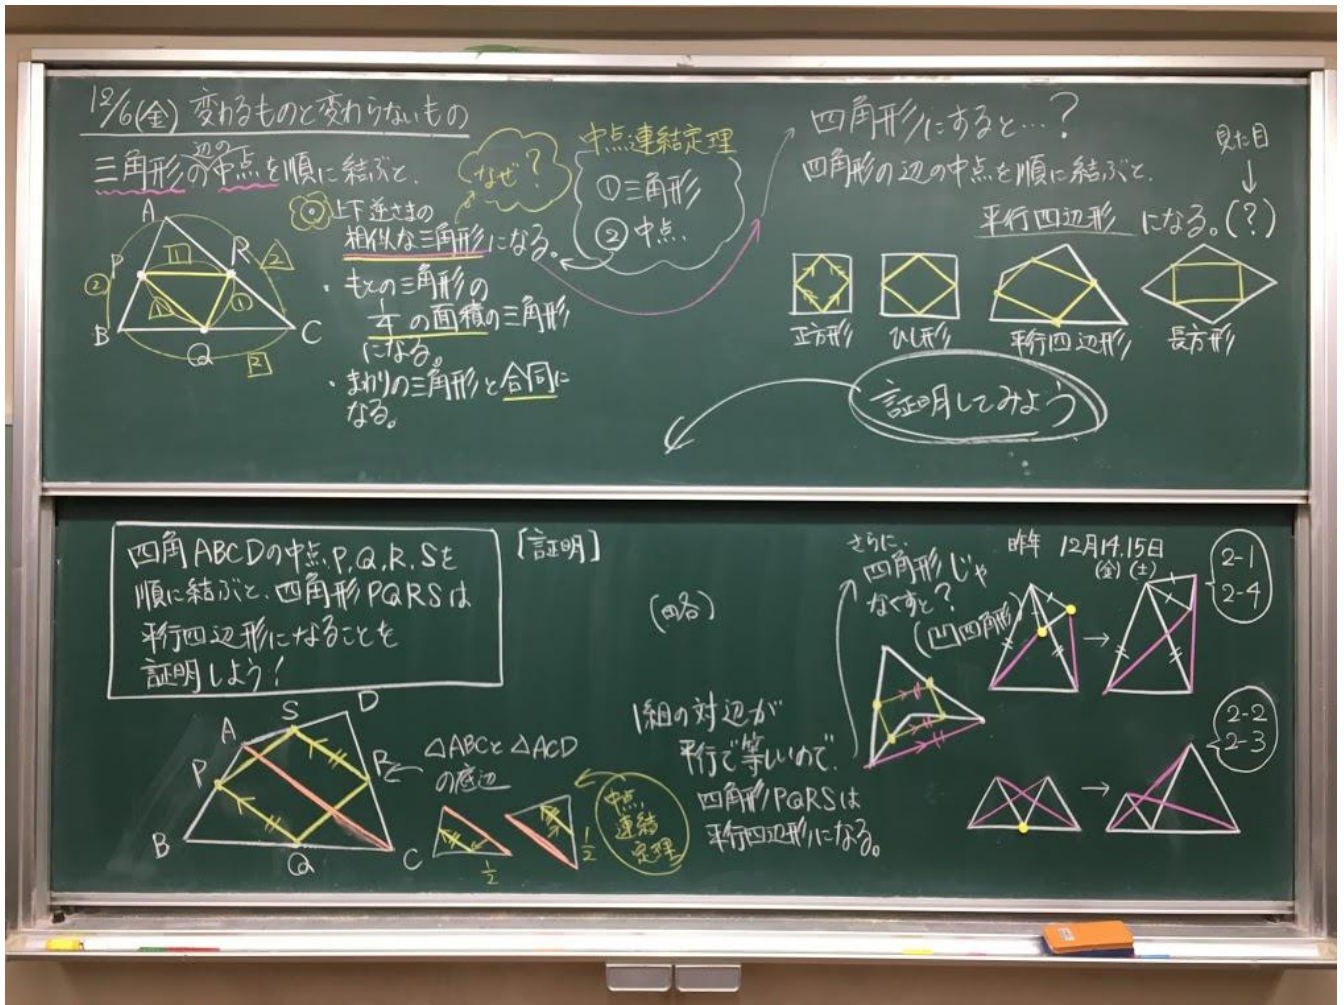 12/6(金) 変わるものと変わらないもの
三角形の辺の中点を順に結ぶと、
A
P
R
B
Q
C
②
①
1
1
2
2
上下逆さまの
相似な三角形になる。
・もとの三角形の
1/4の面積の三角形
になる。
・まわりの三角形と合同に
なる。
なぜ?
中点連結定理
①三角形
②中点
四角形にすると…?
四角形の辺の中点を順に結ぶと、
見た目
↓
平行四辺形になる。(?)
正方形
ひし形
平行四辺形
長方形
証明してみよう
四角ABCDの中点P,Q,R,Sを
順に結ぶと、四角形PQRSは
平行四辺形になることを
証明しよう!
A
S
D
P
R
B
Q
C
[証明]
△ABCと△ACD
の底辺
1/2
1/2
中点
連結
定理
(略)
1組の対辺が
平行で等しいので、
四角形PQRSは
平行四辺形になる。
さらに、
四角形じゃ
なくすと?
(凹四角形)
昨年 12月14.15日
(金)(土)
→
2-1
2-4
→
2-2
2-3